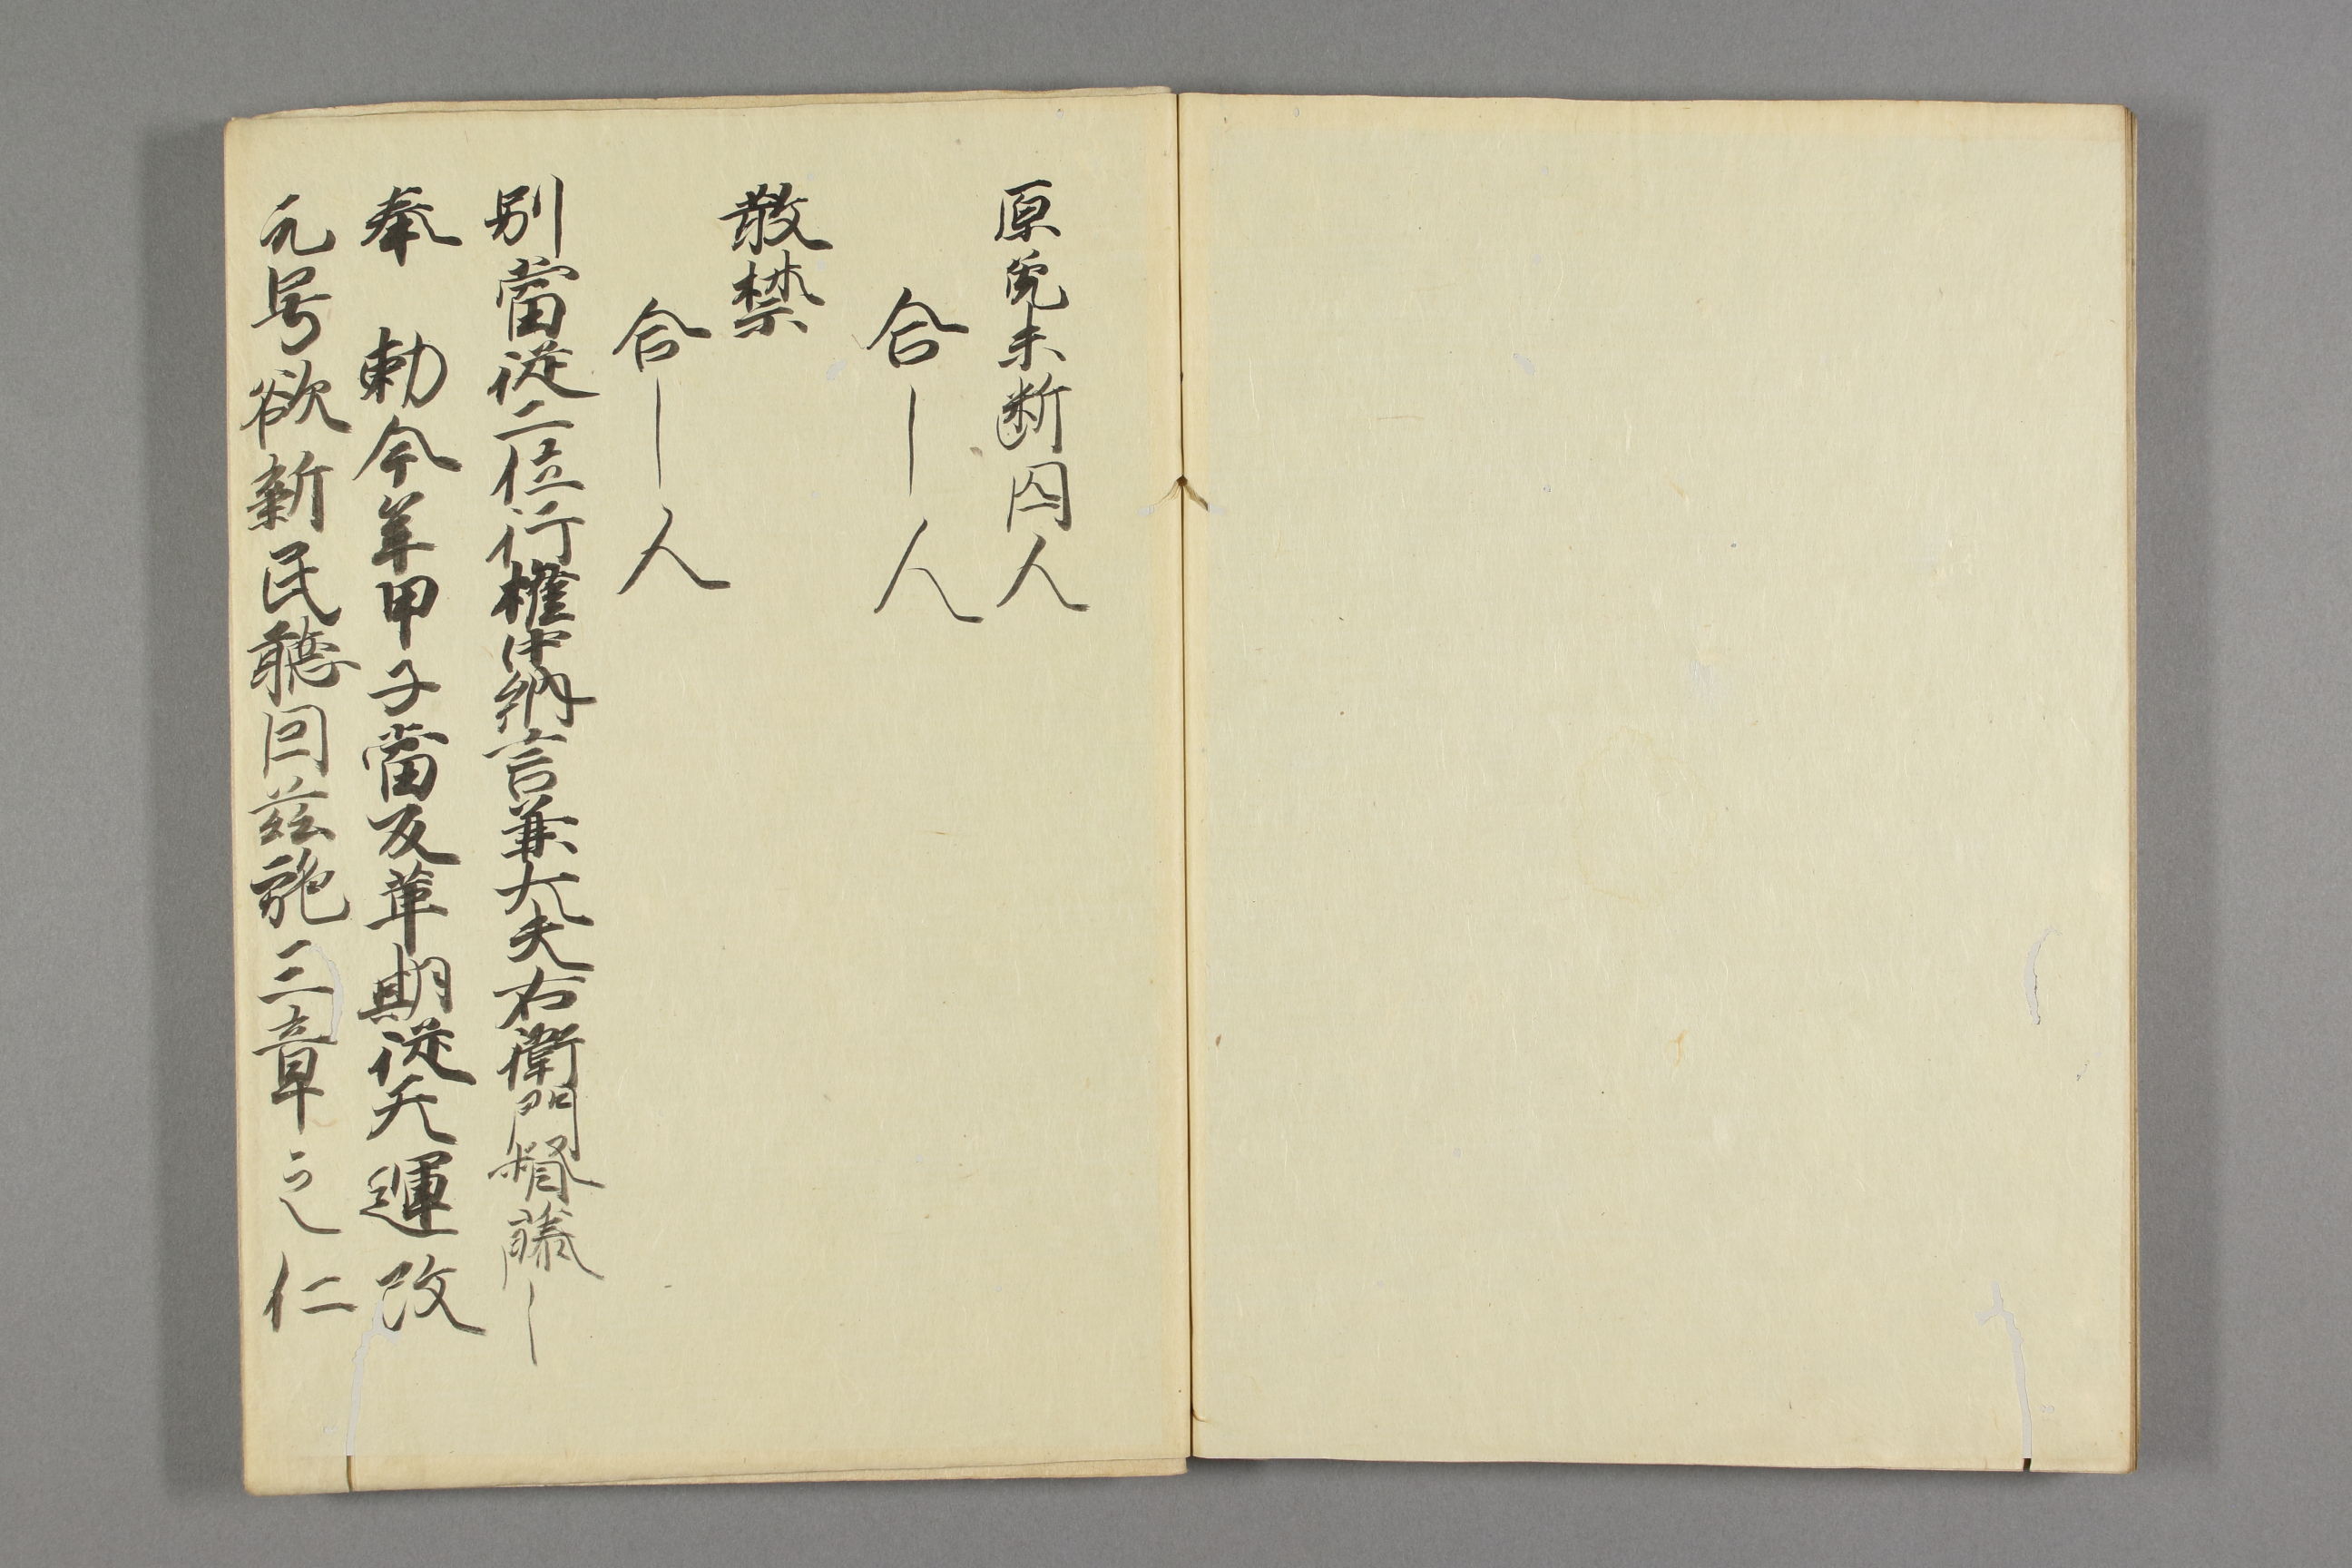 原免未断囚人
合｜人
散禁
合｜人
別當従二位行権中納言兼大夫右衛門督藤｜
奉　勅今年甲子當及革期従天運改
元号欲新民聴因茲施三章之仁